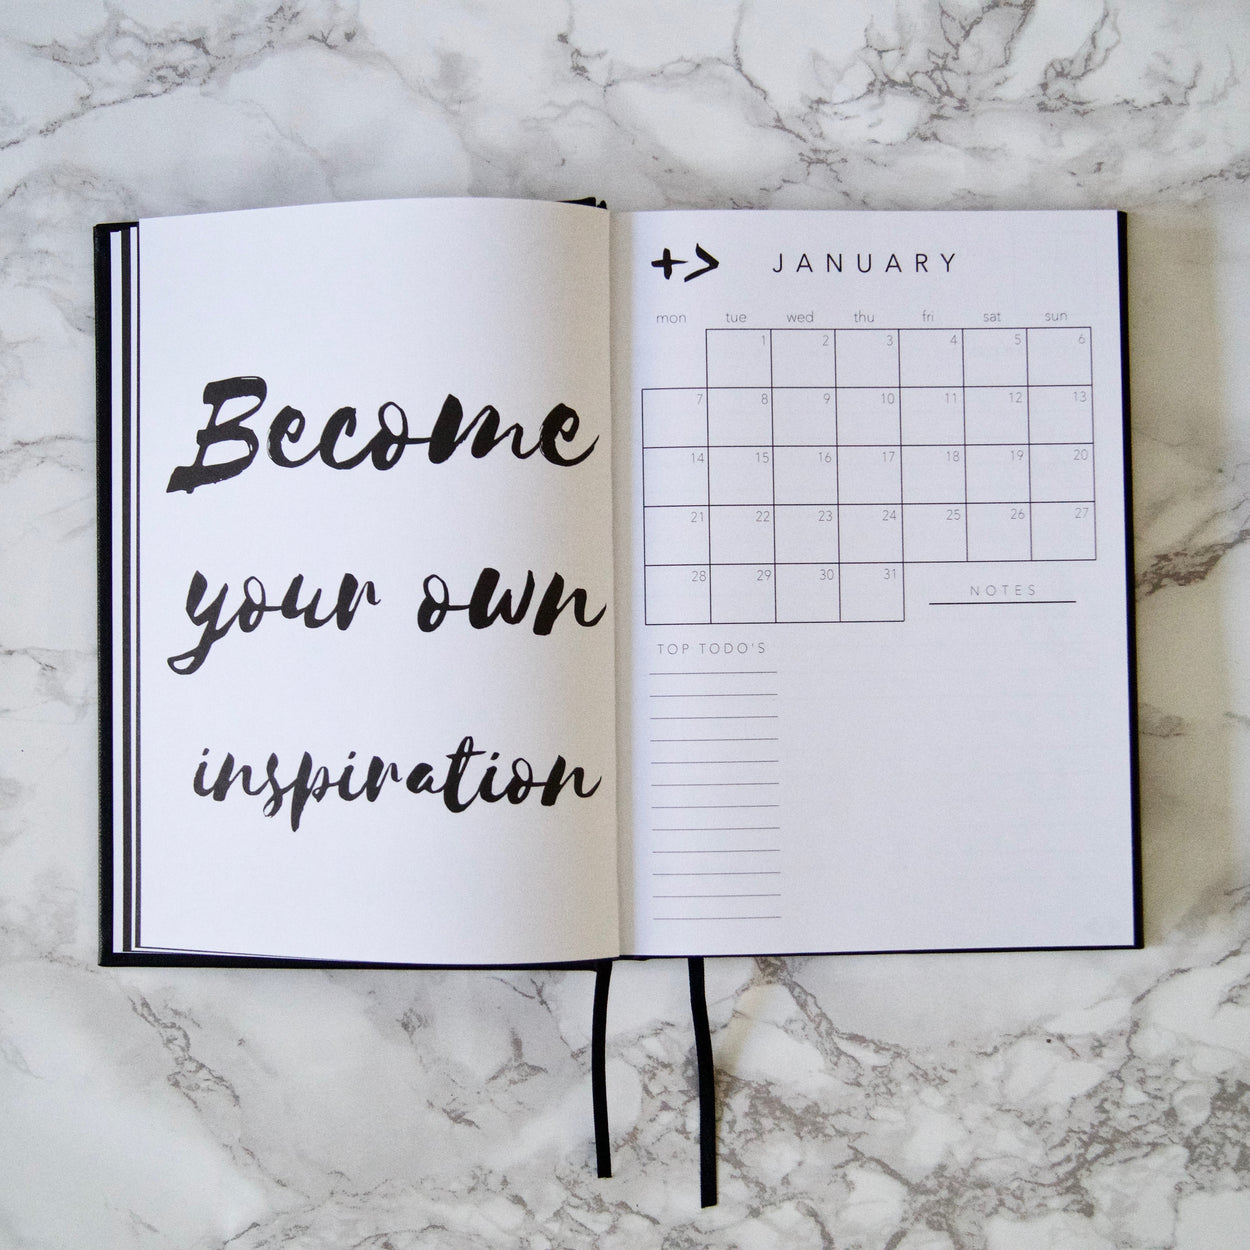 Become
your own
inspiration
+> JANUARY
mon tue wed thu fri sat sun
1 2 3 4 5 6
7 8 9 10 11 12 13
14 15 16 17 18 19 20
21 22 23 24 25 26 27
28 29 30 31
NOTES
TOP TODO'S